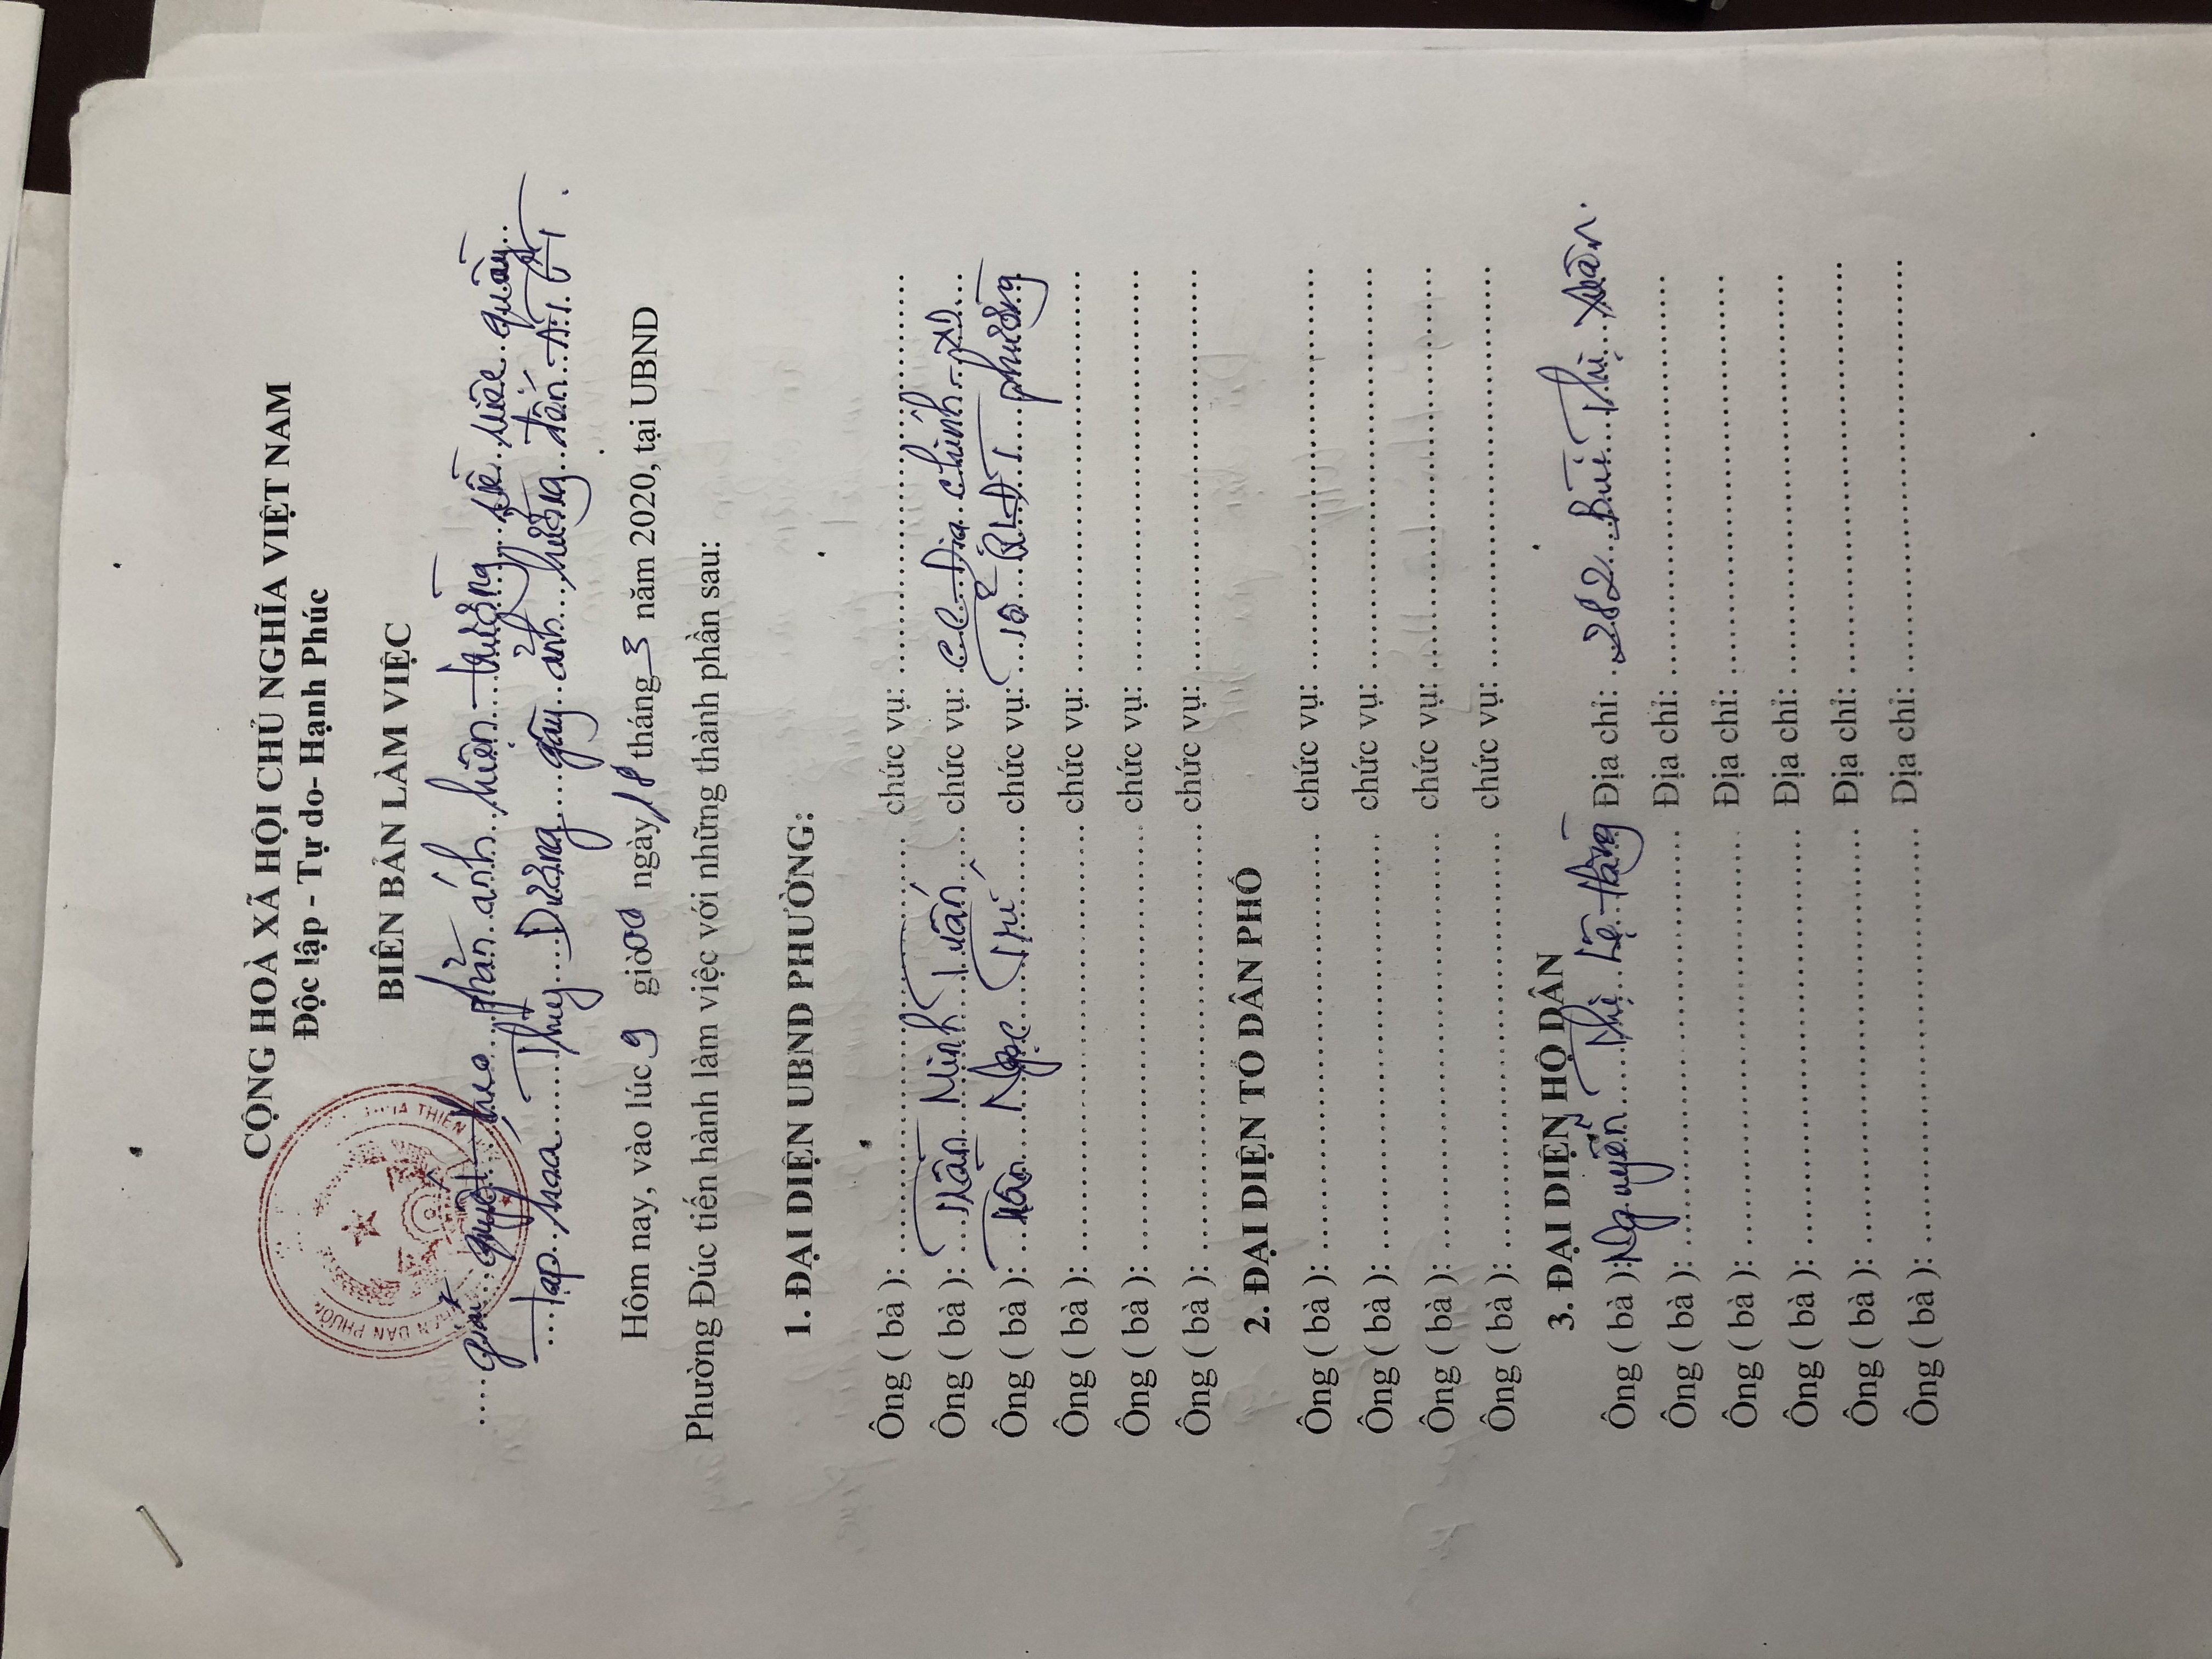 CỘNG HOÀ XÃ HỘI CHỦ NGHĨA VIỆT NAM
Độc lập - Tự do- Hạnh Phúc
BIÊN BẢN LÀM VIỆC
giải quyết theo phản ánh hiện trường về việc quầy
tạp hoá Thuỳ Dương gây ảnh hưởng đến
Hôm nay, vào lúc 9 giờ 00 ngày 18 tháng 3 năm 2020, tại UBND
Phường Đúc tiến hành làm việc với những thành phần sau:
1. ĐẠI DIỆN UBND PHƯỜNG:
Ông ( bà ): chức vụ:
Ông ( bà ): Trần Minh Tuấn chức vụ: CC Địa chính - XD
Ông ( bà ): Trần Ngọc Trí chức vụ: Tổ QLĐT phường
Ông ( bà ): chức vụ:
Ông ( bà ): chức vụ:
Ông ( bà ): chức vụ:
2. ĐẠI DIỆN TỔ DÂN PHỐ
Ông ( bà ): chức vụ:
Ông ( bà ): chức vụ:
Ông ( bà ): chức vụ:
Ông ( bà ): chức vụ:
3. ĐẠI DIỆN HỘ DÂN
Ông ( bà ): Nguyễn Thị Lệ Hằng Địa chỉ: 282 Bùi Thị Xuân.
Ông ( bà ): Địa chỉ:
Ông ( bà ): Địa chỉ:
Ông ( bà ): Địa chỉ:
Ông ( bà ): Địa chỉ:
Ông ( bà ): Địa chỉ: